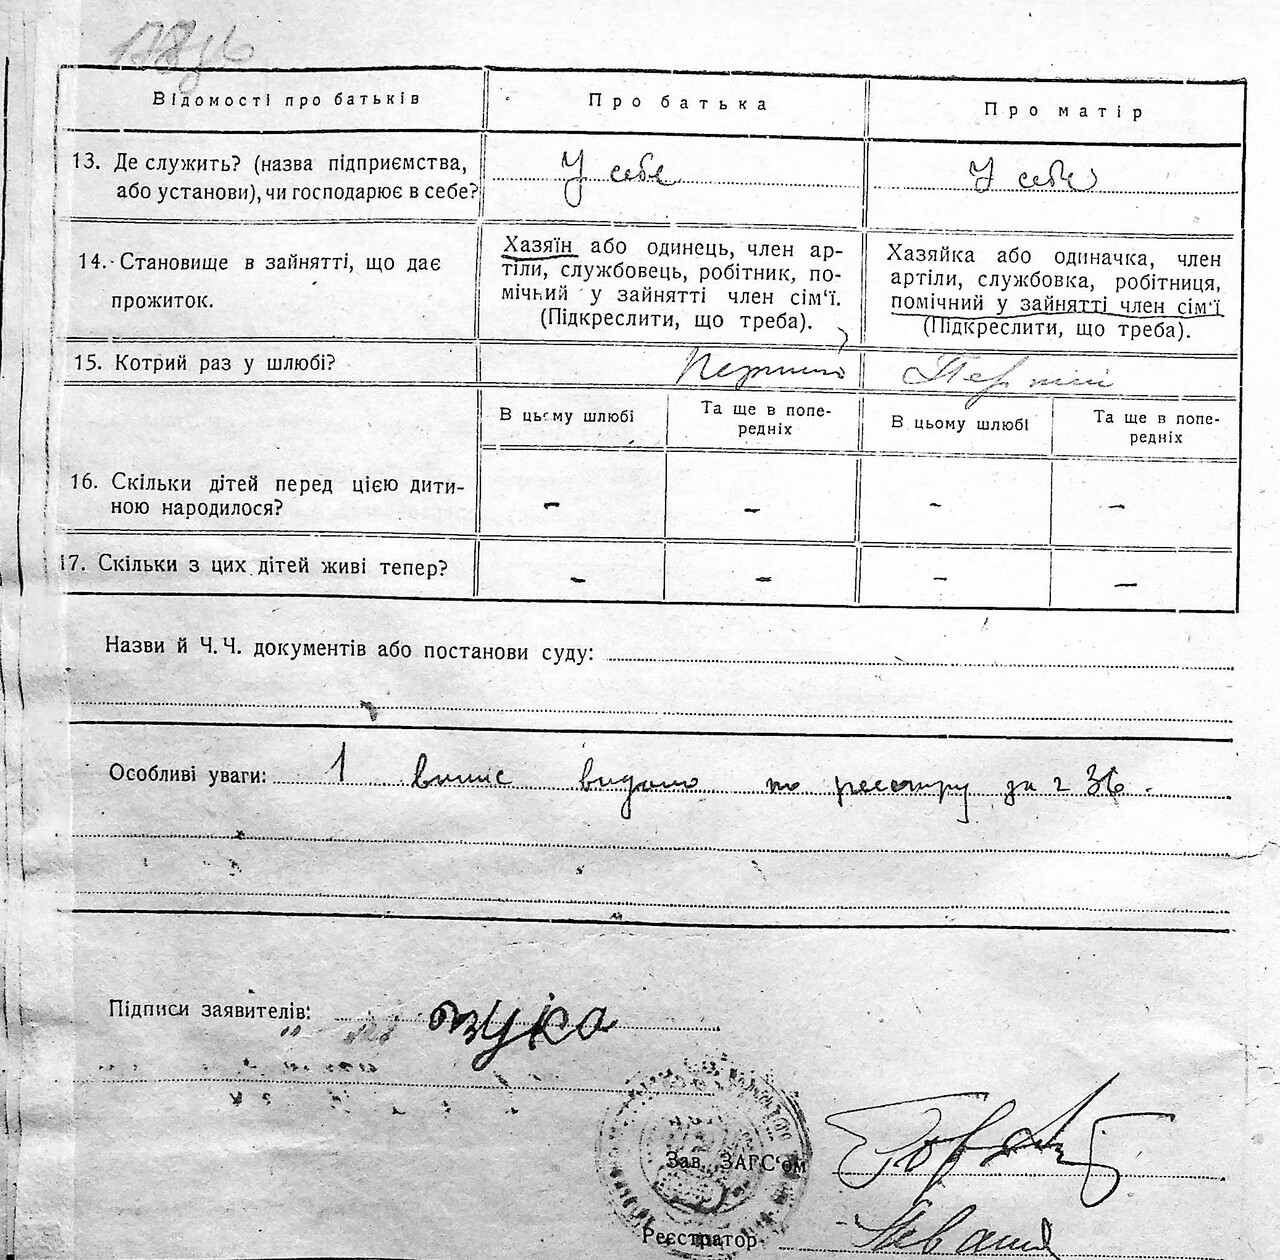 Відомості про батьків
Про батька
Про матір
13. Де служить? (назва підприємства,
або установи), чи господарює в себе?
У себе
У себе
14. Становище в зайнятті, що дає
прожиток.
Хазяїн або одинець, член ар-
тіли, службовець, робітник, по-
мічний у зайнятті член сім'ї.
(Підкреслити, що треба).
Хазяйка або одиначка, член
артіли, службовка, робітниця,
помічний у зайнятті член сім'ї
(Підкреслити, що треба).
15. Котрий раз у шлюбі?
Перший
Перший
В цьому шлюбі
Та ще в попе-
редніх
В цьому шлюбі
Та ще в попе-
редніх
16. Скільки дітей перед цією дити-
ною народилося?
–
–
–
–
17. Скільки з цих дітей живі тепер?
–
–
–
–
Назви й Ч.Ч. документів або постанови суду:
Особливі уваги: 1 випис видано по реєстру за г 36.
Підписи заявителів:
Зав. ЗАГС'ом
Реєстратор